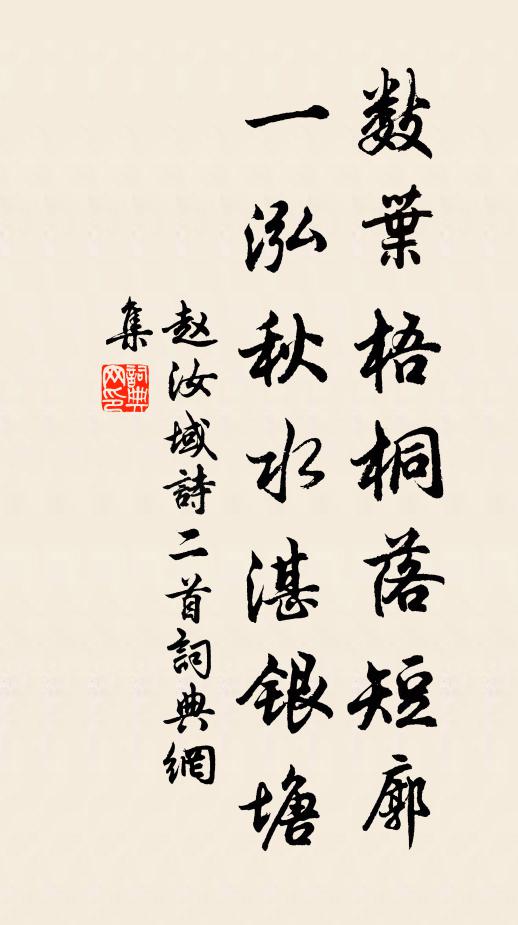 数葉梧桐落短廓
一泓秋水湛銀塘
赵汝域詩二首詞典網
集
詞典
网印